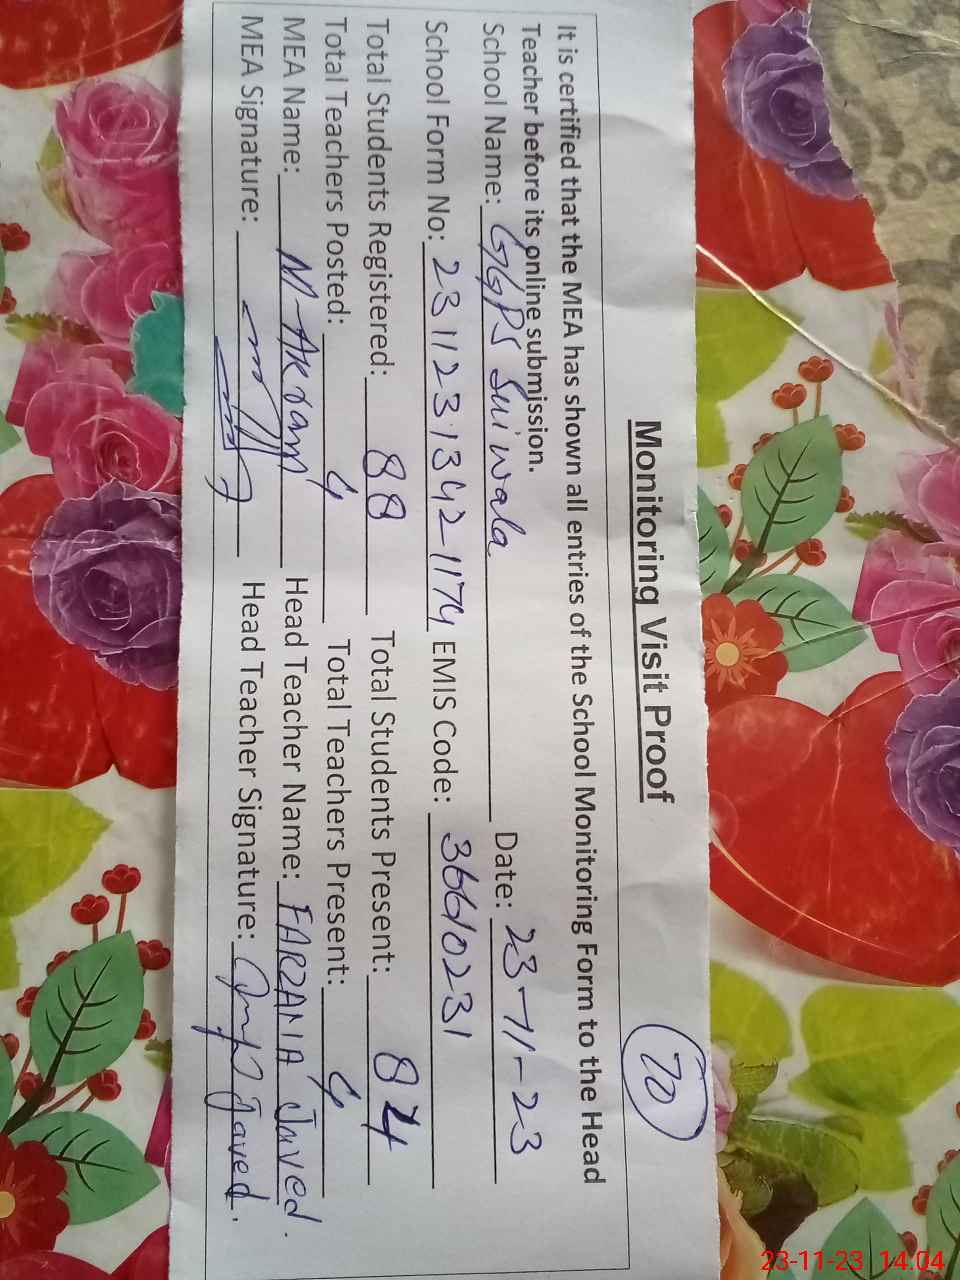 Monitoring Visit Proof
70
It is certified that the MEA has shown all entries of the School Monitoring Form to the Head
Teacher before its online submission.
School Name: GGPS Sui wala Date: 23-11-23
School Form No: 231123 1342-1174 EMIS Code: 36610231
Total Students Registered: 88 Total Students Present: 84
Total Teachers Posted: 4 Total Teachers Present: 4
MEA Name: M-AKram Head Teacher Name: FARZANA Javed.
MEA Signature: Head Teacher Signature: Javed.
23-11-23 14:04